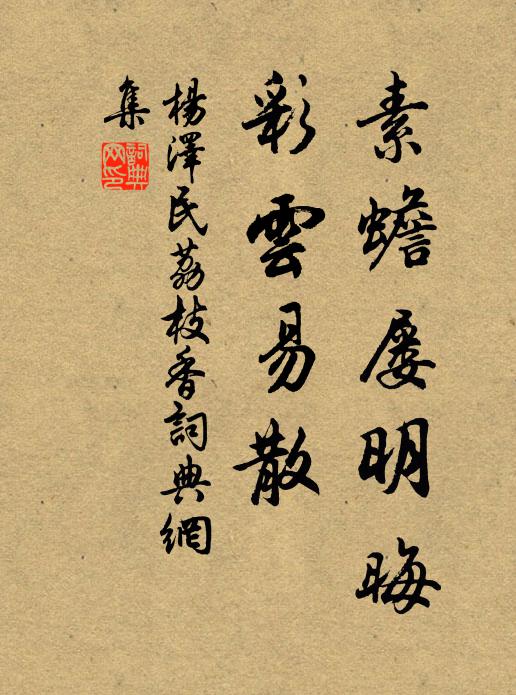 素蟾屡明晦
彩雲易散
楊澤民荔枝香詞典網
集
詞典網印